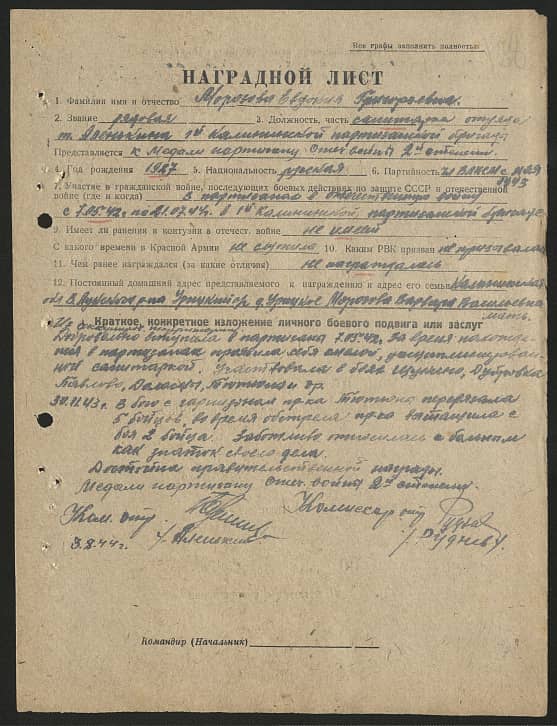 Все графы заполнить полностью
НАГРАДНОЙ ЛИСТ
1. Фамилия имя и отчество Морозова Евдокия Григорьевна.
2. Звание рядовая 3. Должность, часть санитарка отряда
1й Калининской партизанской бригады
Представляется к медали партизану Отеч. войны 2й степени.
4. Год рождения 1927 5. Национальность русская 6. Партийность ВЛКСМ с
1943
7. Участие в гражданской войне, последующих боевых действиях по защите СССР и отечественной
войне (где и когда) В партизанах в отечественную войну
с 7.05.42 по 21.07.44г. в 1й Калининской партизанской бригаде
9. Имеет ли ранения и контузии в отечест. войне не имеет
С какого времени в Красной Армии не служила 10. Каким РВК призван не призывалась
11. Чем ранее награждался (за какие отличия) не награждалась
12. Постоянный домашний адрес представляемого к награждению и адрес его семьи Калининская
обл. д. Урицкое Морозова Варвара Васильевна
мать.
Краткое, конкретное изложение личного боевого подвига или заслуг
Добровольно вступила в партизаны 7.05.42г. За время нахожде-
ния в партизанах проявила себя смелой, дисциплинирован-
ной санитаркой. Участвовала в боях Щукино, Дубровка
Павлово, и др.
30.11.43г. В бою с гарнизоном пр-ка перевязала
5 бойцов, во время обстрела пр-ка вытащила с
боя 2 бойца. Заботливо относилась к больным
как знаток своего дела.
Достойна правительственной награды.
Медали партизану Отеч. войны 2й степени.
Ком. отр. Комиссар отр.
3.8.44г.
Командир (Начальник)